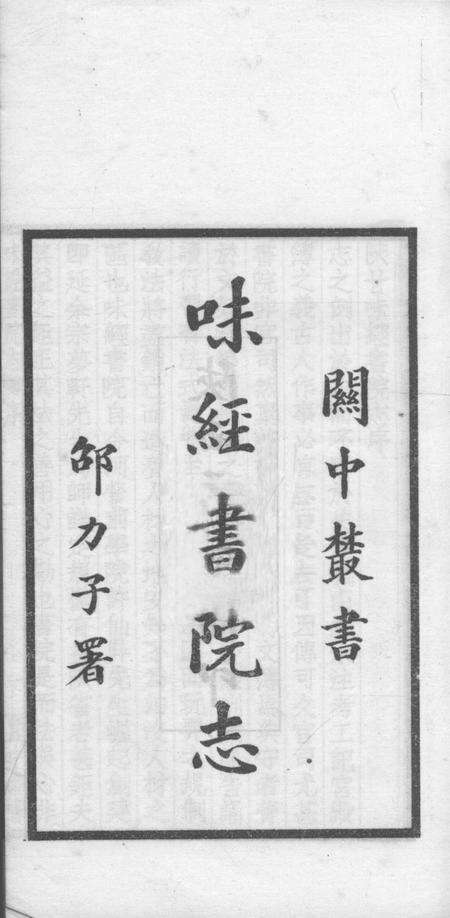 關中叢書
味經書院志
邵力子署